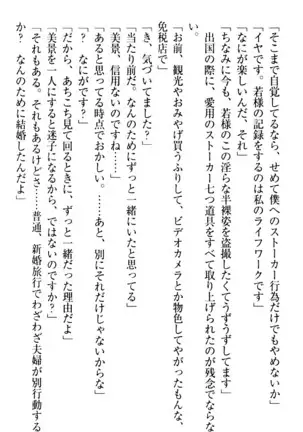 「そこまで自覚してるなら、せめて僕へのストーカー行為だけでもやめないか」
「イヤです。若様の記録をするのは私のライフワークです」
「なにが楽しいんだ、それ」
「ちなみに今も、若様のこの淫らな半裸姿を盗撮したくてうずうずしてます。
出国の際に、愛用のストーカー七つ道具をすべて取り上げられたのが残念でならな
い」
「お前、観光やおみやげ買うふりして、ビデオカメラとか物色してやがったもんな、
免税店で」
「き、気づいてましたか」
「当たり前だ。なんのためにずっと一緒にいたと思ってる」
「美景、信用ないのですね……」
「あると思ってる時点でおかしい。……あと、別にそれだけじゃないからな」
「？　なにがです？」
「だから、あちこち見て回るときに、ずっと一緒だった理由だよ」
「美景を一人にすると迷子になるから、ではないのですか？」
「それもある。それもあるけどさ……普通、新婚旅行でわざわざ夫婦が別行動する
か？　なんのために結婚したんだよ」